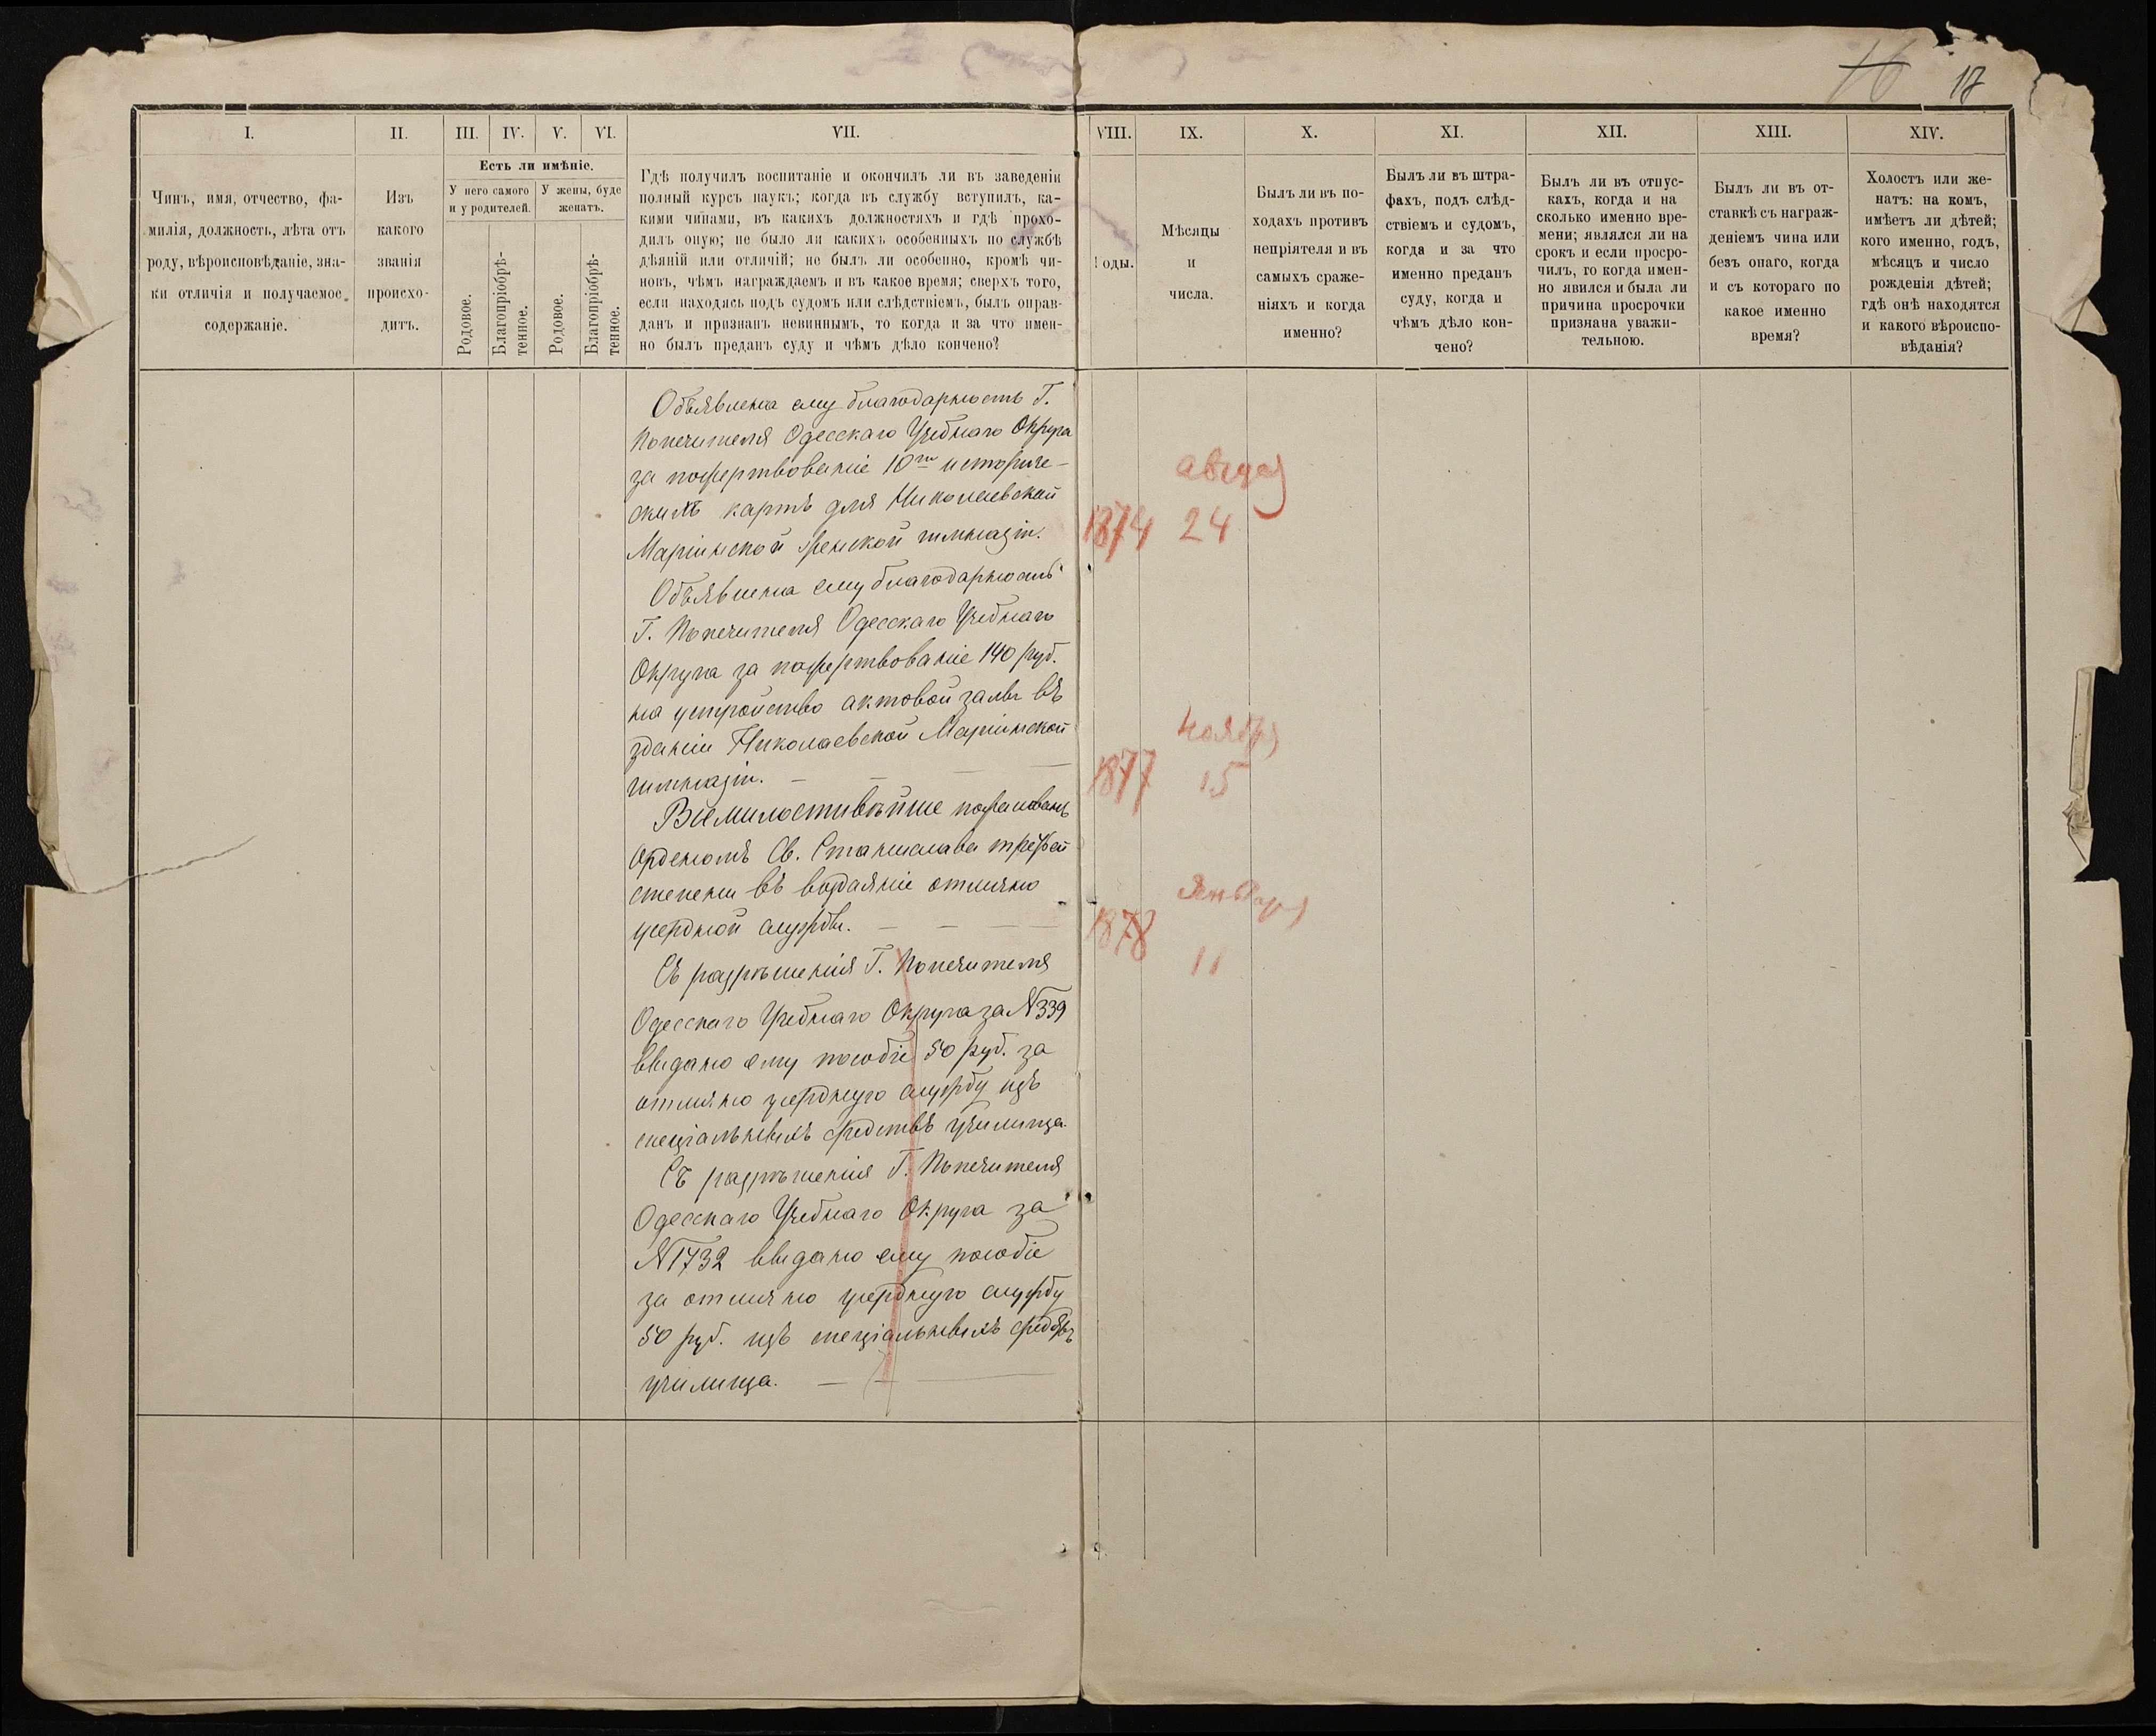 16 17
I.
II.
III.
IV.
V.
VI.
VII.
VIII.
IX.
X.
XI.
XII.
XIII.
XIV.
Чинъ, имя, отчество, фа-
милія, должность, лѣта отъ
роду, вѣроисповѣданіе, зна-
ки отличія и получаемое
содержаніе.
Изъ
какого
званія
происхо-
дитъ.
Есть ли имѣніе.
У него самого
и у родителей.
У жены, буде
женатъ.
Родовое.
Благопріобрѣ-
тенное.
Родовое.
Благопріобрѣ-
тенное.
Гдѣ получилъ воспитаніе и окончилъ ли въ заведеніи
полный курсъ наукъ; когда въ службу вступилъ, ка-
кими чинами, въ какихъ должностяхъ и гдѣ прохо-
дилъ оную; не было ли какихъ особенныхъ по службѣ
дѣяній или отличій; не былъ ли особенно, кромѣ чи-
новъ, чѣмъ награждаемъ и въ какое время; сверхъ того,
если находясь подъ судомъ или слѣдствіемъ, былъ оправ-
данъ и признанъ невиннымъ, то когда и за что имен-
но былъ преданъ суду и чѣмъ дѣло кончено?
Годы.
Мѣсяцы
и
числа.
Былъ ли въ по-
ходахъ противъ
непріятеля и въ
самыхъ сраже-
ніяхъ и когда
именно?
Былъ ли въ штра-
фахъ, подъ слѣд-
ствіемъ и судомъ,
когда и за что
именно преданъ
суду, когда и
чѣмъ дѣло кон-
чено?
Былъ ли въ отпус-
кахъ, когда и на
сколько именно вре-
мени; являлся ли на
срокъ и если просро-
чилъ, то когда имен-
но явился и была ли
причина просрочки
признана уважи-
тельною.
Былъ ли въ от-
ставкѣ съ награж-
деніемъ чина или
безъ онаго, когда
и съ котораго по
какое именно
время?
Холостъ или же-
натъ: на комъ,
имѣетъ ли дѣтей;
кого именно, годъ,
мѣсяцъ и число
рожденія дѣтей;
гдѣ онѣ находятся
и какого вѣроиспо-
вѣданія?
Объявлена ему благодарность Г.
Попечителя Одесскаго Учебнаго Округа
за пожертвованіе 10ти историче-
скихъ картъ для Николаевской
Маріинской женской гимназіи.
августа
1874 24
Объявлена ему благодарность
Г. Попечителя Одесскаго Учебнаго
Округа за пожертвованіе 140 руб.
на устройство актовой залы въ
зданіи Николаевской Маріинской
гимназіи.
ноября
1877 15
Всемилостивѣйше пожалованъ
Орденомъ Св. Станислава третьей
степени въ воздаяніе отлично
усердной службы.
января
1878
11
Съ разрѣшенія Г. Попечителя
Одесскаго Учебнаго Округа за N 339
выдано ему пособіе 50 руб. за
отлично усердную службу изъ
спеціальныхъ средствъ училища.
Съ разрѣшенія Г. Попечителя
Одесскаго Учебнаго Округа за
N 1732 выдано ему пособіе
за отлично усердную службу
50 руб. изъ спеціальныхъ средствъ
училища.